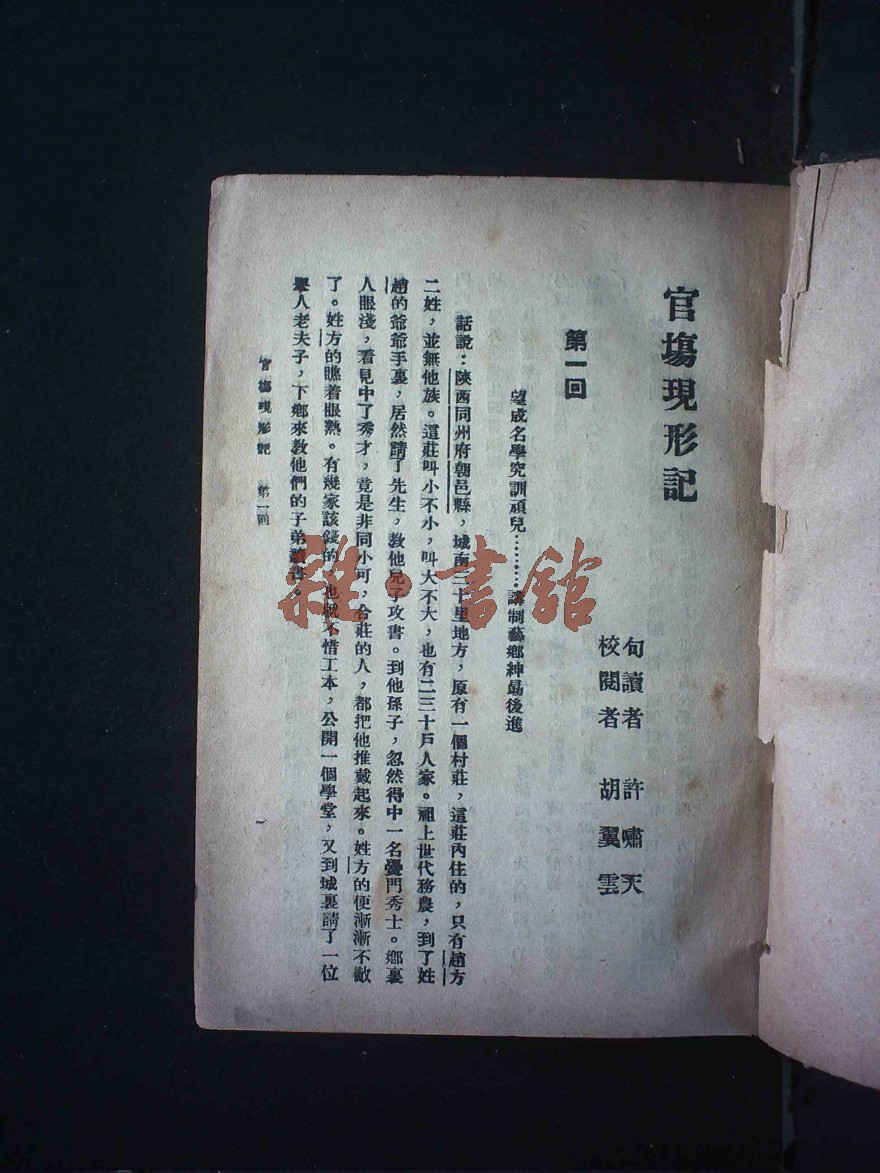 官塲現形記
句讀者 許嘯天
校閱者 胡翼雲
第一回
望成名學究訓頑兒………講制藝鄉紳勗後進
話說：陝西同州府朝邑縣，城南三十里地方，原有一個村莊，這莊內住的，只有趙方
二姓，並無他族。這莊叫小不小，叫大不大，也有二三十戶人家。祖上世代務農，到了姓
趙的爺爺手裏，居然請了先生，教他兒子攻書。到他孫子，忽然得中一名黌門秀士。鄉裏
人眼淺，看見中了秀才，竟是非同小可，合莊的人，都把他推戴起來。姓方的便漸漸不敵
了。姓方的瞧着眼熱。有幾家該錢的，也就不惜工本，公開一個學堂，又到城裏請了一位
舉人老夫子，下鄉來教他們的子弟讀書。
官塲現形記 第一回
一
雜·書館